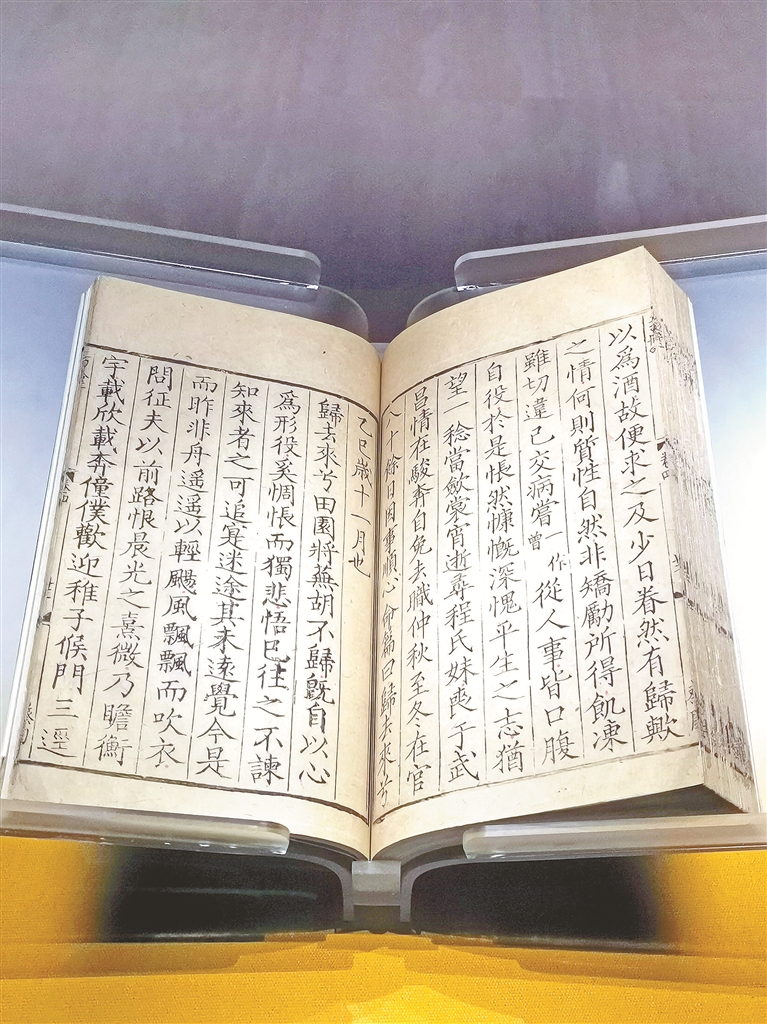 以為酒故便求之及少日眷然有歸歟
之情何則質性自然非矯勵所得飢凍
雖切違己交病嘗一作曾從人事皆口腹
自役於是悵然慷慨深愧平生之志猶
望一稔當斂裳宵逝尋程氏妹喪于武
昌情在駿奔自免去職仲秋至冬在官
八十餘日因事順心命篇曰歸去來兮
乙巳歲十一月也
歸去來兮田園將蕪胡不歸旣自以心
爲形役奚惆悵而獨悲悟已往之不諫
知來者之可追寔迷途其未遠覺今是
而昨非舟遥遥以輕颺風飄飄而吹衣
問征夫以前路恨晨光之熹微乃瞻衡
宇載欣載奔僮僕歡迎稚子候門三逕